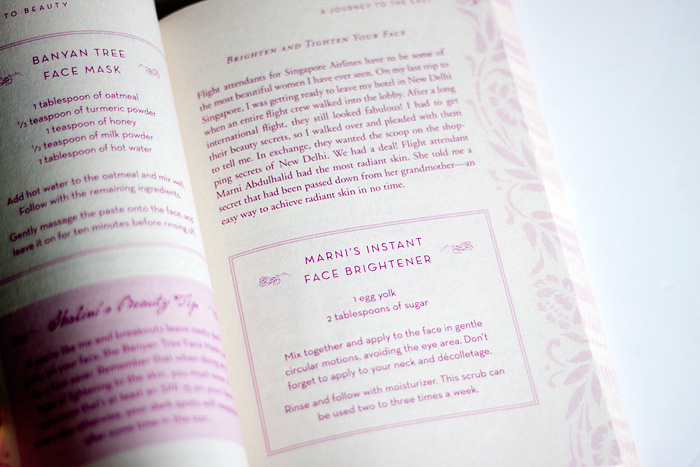 TO BEAUTY
BANYAN TREE
FACE MASK
1 tablespoon of oatmeal
1/3 teaspoon of turmeric powder
1 teaspoon of honey
1/2 teaspoon of milk powder
1 tablespoon of hot water
Add hot water to the oatmeal and mix well.
Follow with the remaining ingredients.
Gently massage the paste onto the face, and
leave it on for ten minutes before rinsing off.
Shalini's Beauty Tip
like me and breakouts leave
your face, the Banyan Tree Face
Remember that when
lightening to the skin, you must
that's at least an SPF 15 on your
your dark spots will
after some time in the sun.
A JOURNEY TO THE EAST
BRIGHTEN AND TIGHTEN YOUR FACE
Flight attendants for Singapore Airlines have to be some of
the most beautiful women I have ever seen. On my last trip to
Singapore, I was getting ready to leave my hotel in New Delhi
when an entire flight crew walked into the lobby. After a long
international flight, they still looked fabulous! I had to get
their beauty secrets, so I walked over and pleaded with them
to tell me. In exchange, they wanted the scoop on the shop-
ping secrets of New Delhi. We had a deal! Flight attendant
Marni Abdulhalid had the most radiant skin. She told me a
secret that had been passed down from her grandmother—an
easy way to achieve radiant skin in no time.
MARNI'S INSTANT
FACE BRIGHTENER
1 egg yolk
2 tablespoons of sugar
Mix together and apply to the face in gentle
circular motions, avoiding the eye area. Don't
forget to apply to your neck and décolletage.
Rinse and follow with moisturizer. This scrub can
be used two to three times a week.